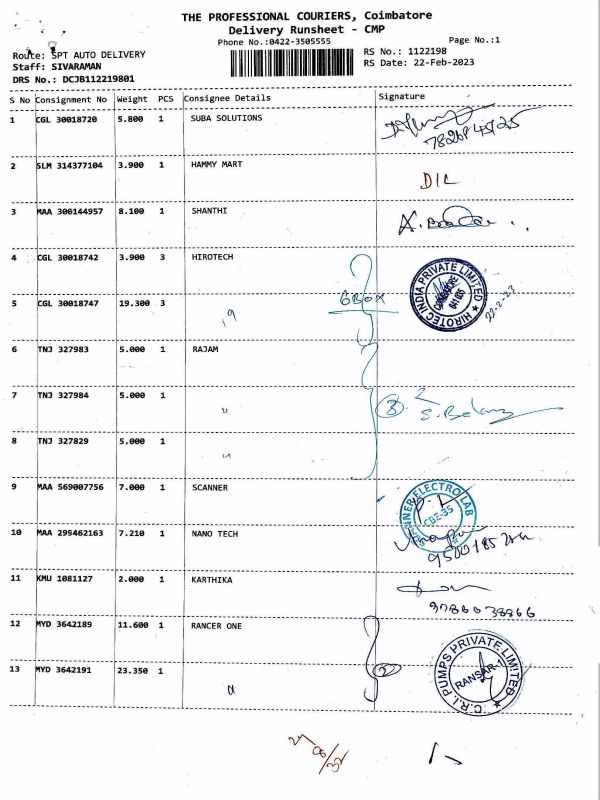 THE PROFESSIONAL COURIERS, Coimbatore
Delivery Runsheet - CMP
Phone No.:0422-3505555 Page No.:1
Route: SPT AUTO DELIVERY RS No.: 1122198
Staff: SIVARAMAN RS Date: 22-Feb-2023
DRS No.: DCJB112219801
S No Consignment No Weight PCS Consignee Details Signature
1 CGL 30018720 5.800 1 SUBA SOLUTIONS
2 SLM 314377104 3.900 1 HAMMY MART D/L
3 MAA 300144957 8.100 1 SHANTHI
4 CGL 30018742 3.900 3 HIROTECH
HIROTEC INDIA PRIVATE LIMITED
COIMBATORE
641 035
22-2-23
5 CGL 30018747 19.300 3 " 6 BOX
6 TNJ 327983 5.000 1 RAJAM
7 TNJ 327984 5.000 1 " 3
8 TNJ 327829 5.000 1 "
9 MAA 569007756 7.000 1 SCANNER
ELECTRO LAB
CBE-35
10 MAA 299462163 7.210 1 NANO TECH
11 KMU 1081127 2.000 1 KARTHIKA
9786038866
12 MYD 3642189 11.600 1 RANCER ONE
13 MYD 3642191 23.350 1 " 2
C.R.I PUMPS PRIVATE LIMITED
RANSAR-1